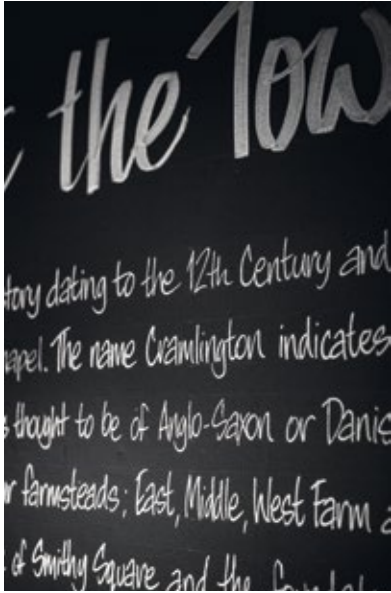 the Tow
tory dating to the 12th Century and
apel. The name Cramlington indicates
s thought to be of Anglo-Saxon or Danis
r farmsteads; East, Middle, West Farm a
of Smithy Square and the